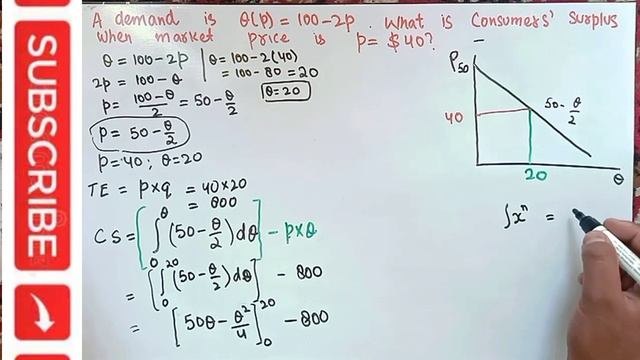 SUBSCRIBE
A demand is Q(p) = 100-2p. What is Consumers' Surplus
when market price is p = $40?
Q = 100-2p
2p = 100-Q
p = (100-Q)/2 = 50-Q/2
p = 50-Q/2
p=40; Q=20
Q = 100-2(40)
= 100-80 = 20
Q=20
TE = p×q = 40×20
= 800
CS = [∫₀^Q (50-Q/2)dQ] - p×Q
= [∫₀²⁰ (50-Q/2)dQ] - 800
= [50Q - Q²/4]₀²⁰ - 800
P
50
40
50-Q/2
20
Q
∫xⁿ =